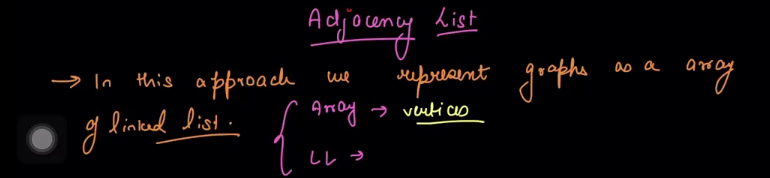 Adjacency List
→ In this approach we represent graphs as a array
of linked list. { Array → vertices
LL →